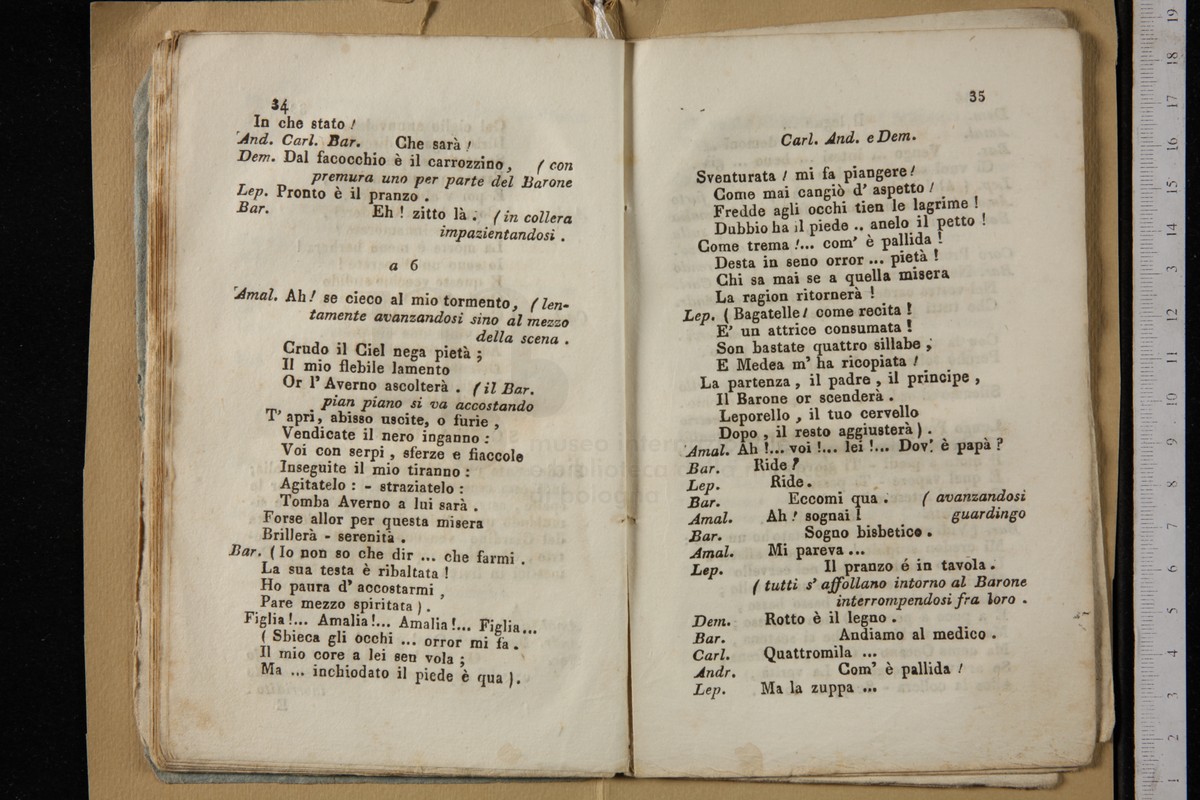 34
In che stato !
And. Carl. Bar. Che sarà !
Dem. Dal facocchio è il carrozzino, ( con
premura uno per parte del Barone
Lep. Pronto è il pranzo .
Bar. Eh ! zitto là . ( in collera
impazientandosi .
a 6
Amal. Ah! se cieco al mio tormento, ( len-
tamente avanzandosi sino al mezzo
della scena .
Crudo il Ciel nega pietà ;
Il mio flebile lamento
Or l' Averno ascolterà . ( il Bar.
pian piano si va accostando
T' apri, abisso uscite, o furie ,
Vendicate il nero inganno :
Voi con serpi , sferze e fiaccole
Inseguite il mio tiranno :
Agitatelo : - straziatelo :
Tomba Averno a lui sarà .
Forse allor per questa misera
Brillerà - serenità .
Bar. ( Io non so che dir ... che farmi .
La sua testa è ribaltata !
Ho paura d' accostarmi ,
Pare mezzo spiritata ) .
Figlia !... Amalia !... Amalia !... Figlia...
( Sbieca gli occhi ... orror mi fa .
Il mio core a lei sen vola ;
Ma ... inchiodato il piede è qua ).
35
Carl. And. e Dem.
Sventurata ! mi fa piangere !
Come mai cangiò d' aspetto !
Fredde agli occhi tien le lagrime !
Dubbio ha il piede .. anelo il petto !
Come trema !... com' è pallida !
Desta in seno orror ... pietà !
Chi sa mai se a quella misera
La ragion ritornerà !
Lep. ( Bagatelle ! come recita !
E' un attrice consumata !
Son bastate quattro sillabe ;
E Medea m' ha ricopiata !
La partenza , il padre , il principe ,
Il Barone or scenderà .
Leporello , il tuo cervello
Dopo , il resto aggiusterà ) .
Amal. Ah !... voi !... lei !... Dov' è papà ?
Bar. Ride ?
Lep. Ride .
Bar. Eccomi qua . ( avanzandosi
Amal. Ah ! sognai ! guardingo
Bar. Sogno bisbetico .
Amal. Mi pareva ...
Lep. Il pranzo é in tavola .
( tutti s' affollano intorno al Barone
interrompendosi fra loro .
Dem. Rotto è il legno .
Bar. Andiamo al medico .
Carl. Quattromila ...
Andr. Com' è pallida !
Lep. Ma la zuppa ...